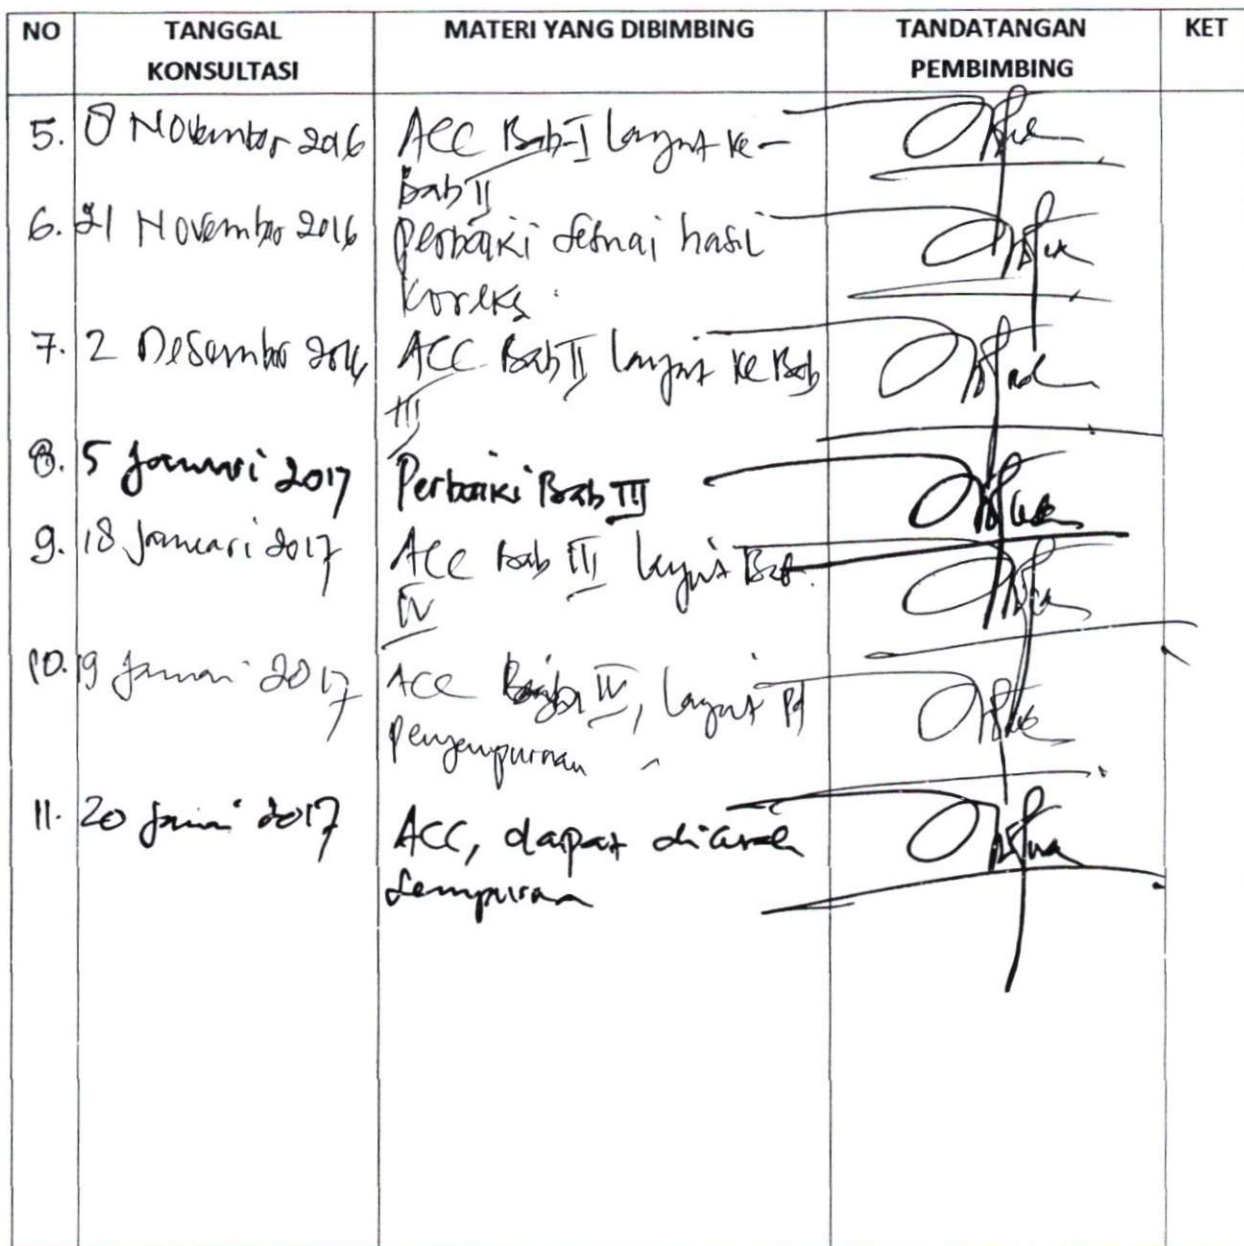 NO TANGGAL KONSULTASI MATERI YANG DIBIMBING TANDATANGAN PEMBIMBING KET
5. 8 November 2016 ACC Bab I lanjut ke
Bab II
6. 21 November 2016 perbaiki sesuai hasil
koreksi
7. 2 Desember 2016 ACC Bab II lanjut ke Bab
III
8. 5 Januari 2017 Perbaiki Bab III
9. 18 Januari 2017 ACC Bab III lanjut Bab
IV
10. 19 2017 ACC IV, lanjut pd
penyempurnaan
11. 20 2017 ACC, dapat